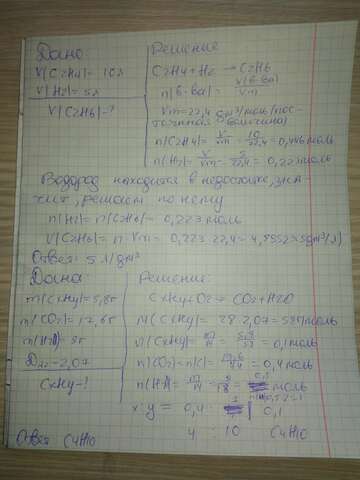 Дано
V(C2H4)= 10л
V(H2)= 5л
V(C2H6)-?
Решение
C2H4+H2 → C2H6
n(в-ва)= V(в-ва)/Vm
Vm=22,4 дм³/моль (пос-
тоянная величина)
n(C2H4)= V/Vm = 10/22,4 = 0,446 моль
n(H2)= V/Vm = 5/22,4 = 0,223 моль
Водород находится в недостатке, зна-
чит, решаем по нему
n(H2)= n(C2H6)= 0,223 моль
V(C2H6)= n·Vm= 0,223·22,4= 4,9952≈5 дм³(л)
Ответ: 5 л/дм³
Дано:
m(CxHy)=5,8г
m(CO2)= 17,6г
m(H2O) 9г
D =2,07
CxHy-?
Решение
CxHy+O2 → CO2+H2O
M(CxHy)= 28·2,07= 58г/моль
(CxHy)= m/M = 5,8/58 = 0,1моль
n(CO2)=n(C)= 17,6/44 = 0,4моль
= m/M = 9/18 = моль
x:y = 0,4 : 0,1
4 : 10 C4H10
Ответ C4H10